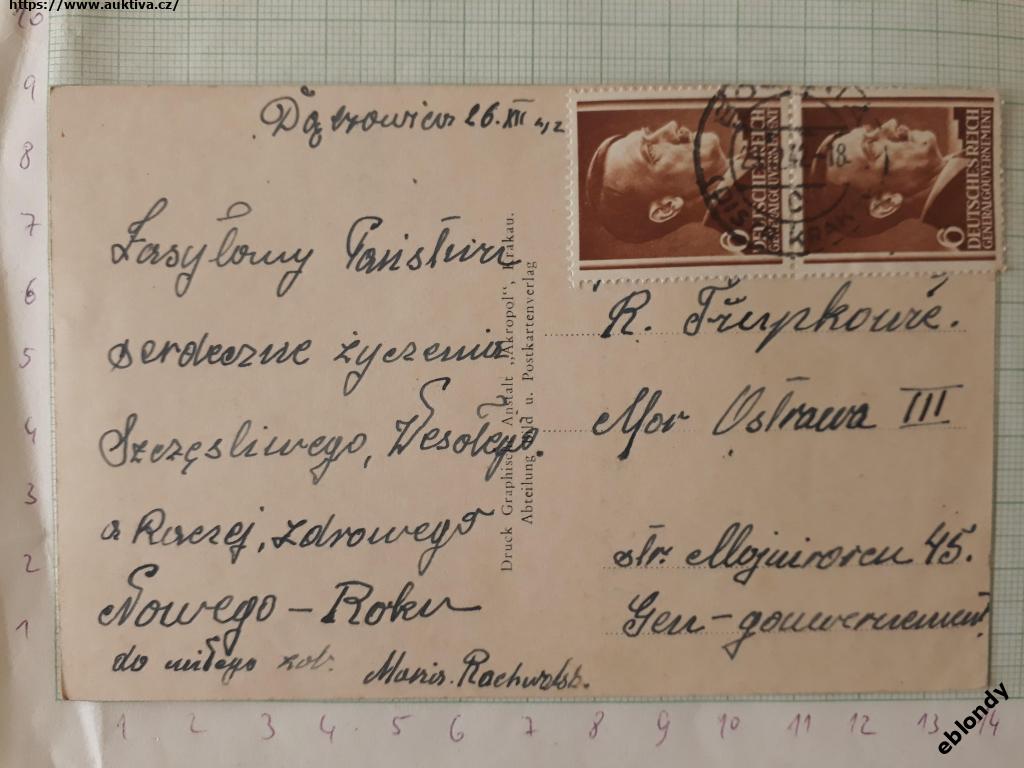 https://www.auktiva.cz/
26.XII 42
Zasyłamy Państwu
serdeczne życzenia
Szczęsliwego, Wesołego
a Raczej, zdrowego
Nowego – Roku
do miłego zob.
Maria
Druck Graphische Anstalt „Akropol", Krakau.
Abteilung Bild u. Postkartenverlag
6
DEUTSCHES REICH
GENERALGOUVERNEMENT
6
DEUTSCHES REICH
GENERALGOUVERNEMENT
R.
Mor Ostrawa III
str. 45.
Gen-gouvernement
10
9
8
7
6
5
4
3
2
1
1 2 3 4 5 6 7 8 9 10 11 12 13 14
eblondy